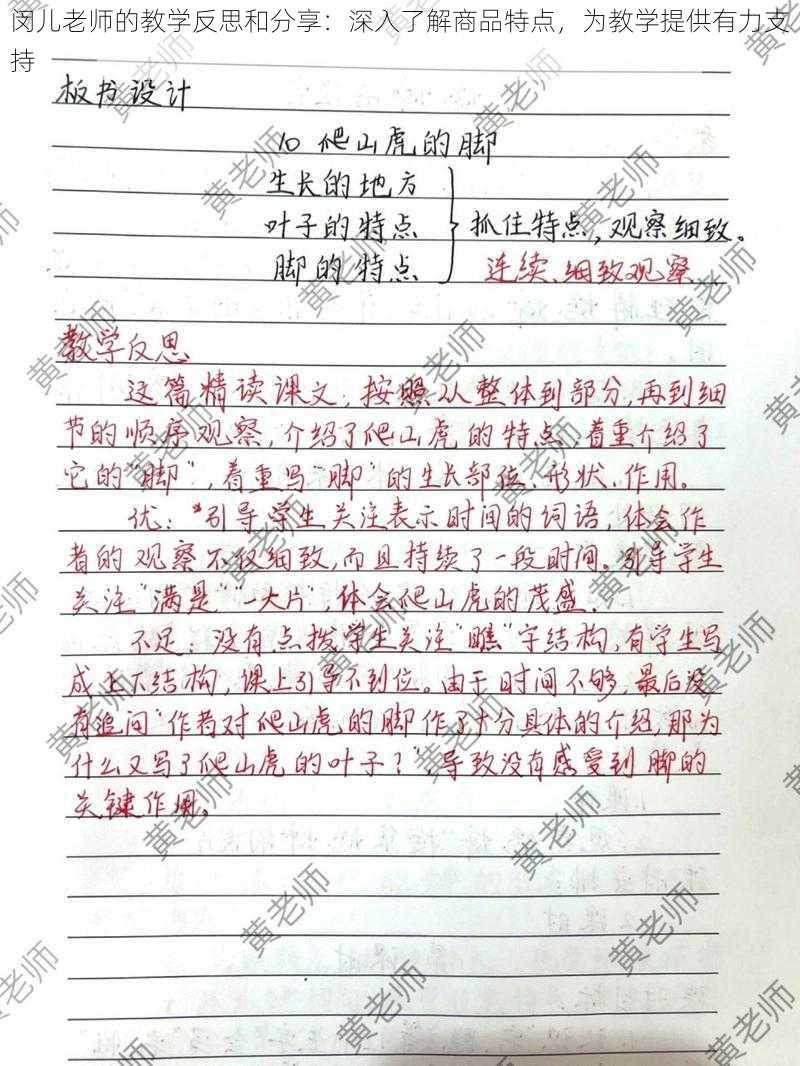 闵儿老师的教学反思和分享：深入了解商品特点，为教学提供有力支
持
板书设计
10 爬山虎的脚
生长的地方
叶子的特点 } 抓住特点，观察细致。
脚的特点 连续、细致观察
教学反思
这篇精读课文，按照从整体到部分，再到细
节的顺序观察，介绍了爬山虎的特点，着重介绍了
它的“脚”，着重写“脚”的生长部位、形状、作用。
优：“引导学生关注表示时间的词语，体会作
者的观察不仅细致，而且持续了一段时间。引导学生
关注“满是”“一大片”，体会爬山虎的茂盛。
不足：没有点拨学生关注“瞧”字结构，有学生写
成上下结构，课上引导不到位。由于时间不够，最后没
有追问“作者对爬山虎的脚作了十分具体的介绍，那为
什么又写了爬山虎的叶子？”，导致没有感受到脚的
关键作用。
黄老师